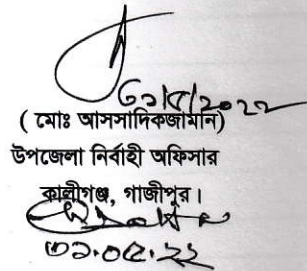 ৩১/৫/২০২২
( মোঃ আসসাদিকজামান)
উপজেলা নির্বাহী অফিসার
কালীগঞ্জ, গাজীপুর।
৩১.০৫.২২